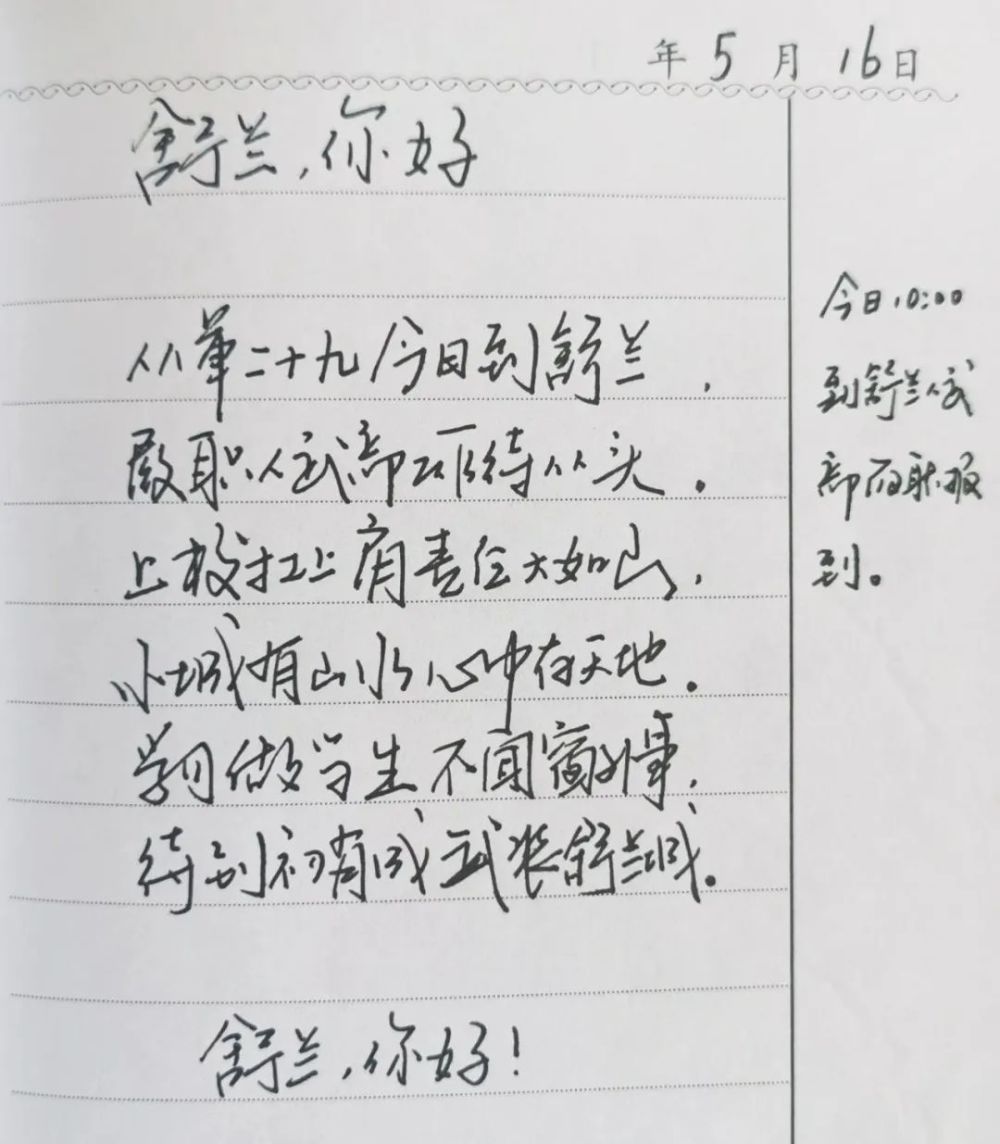 年 5 月 16日
舒兰,你好
从军二十九今日到舒兰,
履职人武部万事待从头。
上校扛上肩责任大如山,
小城有山水心中有天地。
学习做学生不闻窗外事,
待到初有成武装舒兰城。
舒兰,你好!
今日10:00
到舒兰人武
部履职报
到。